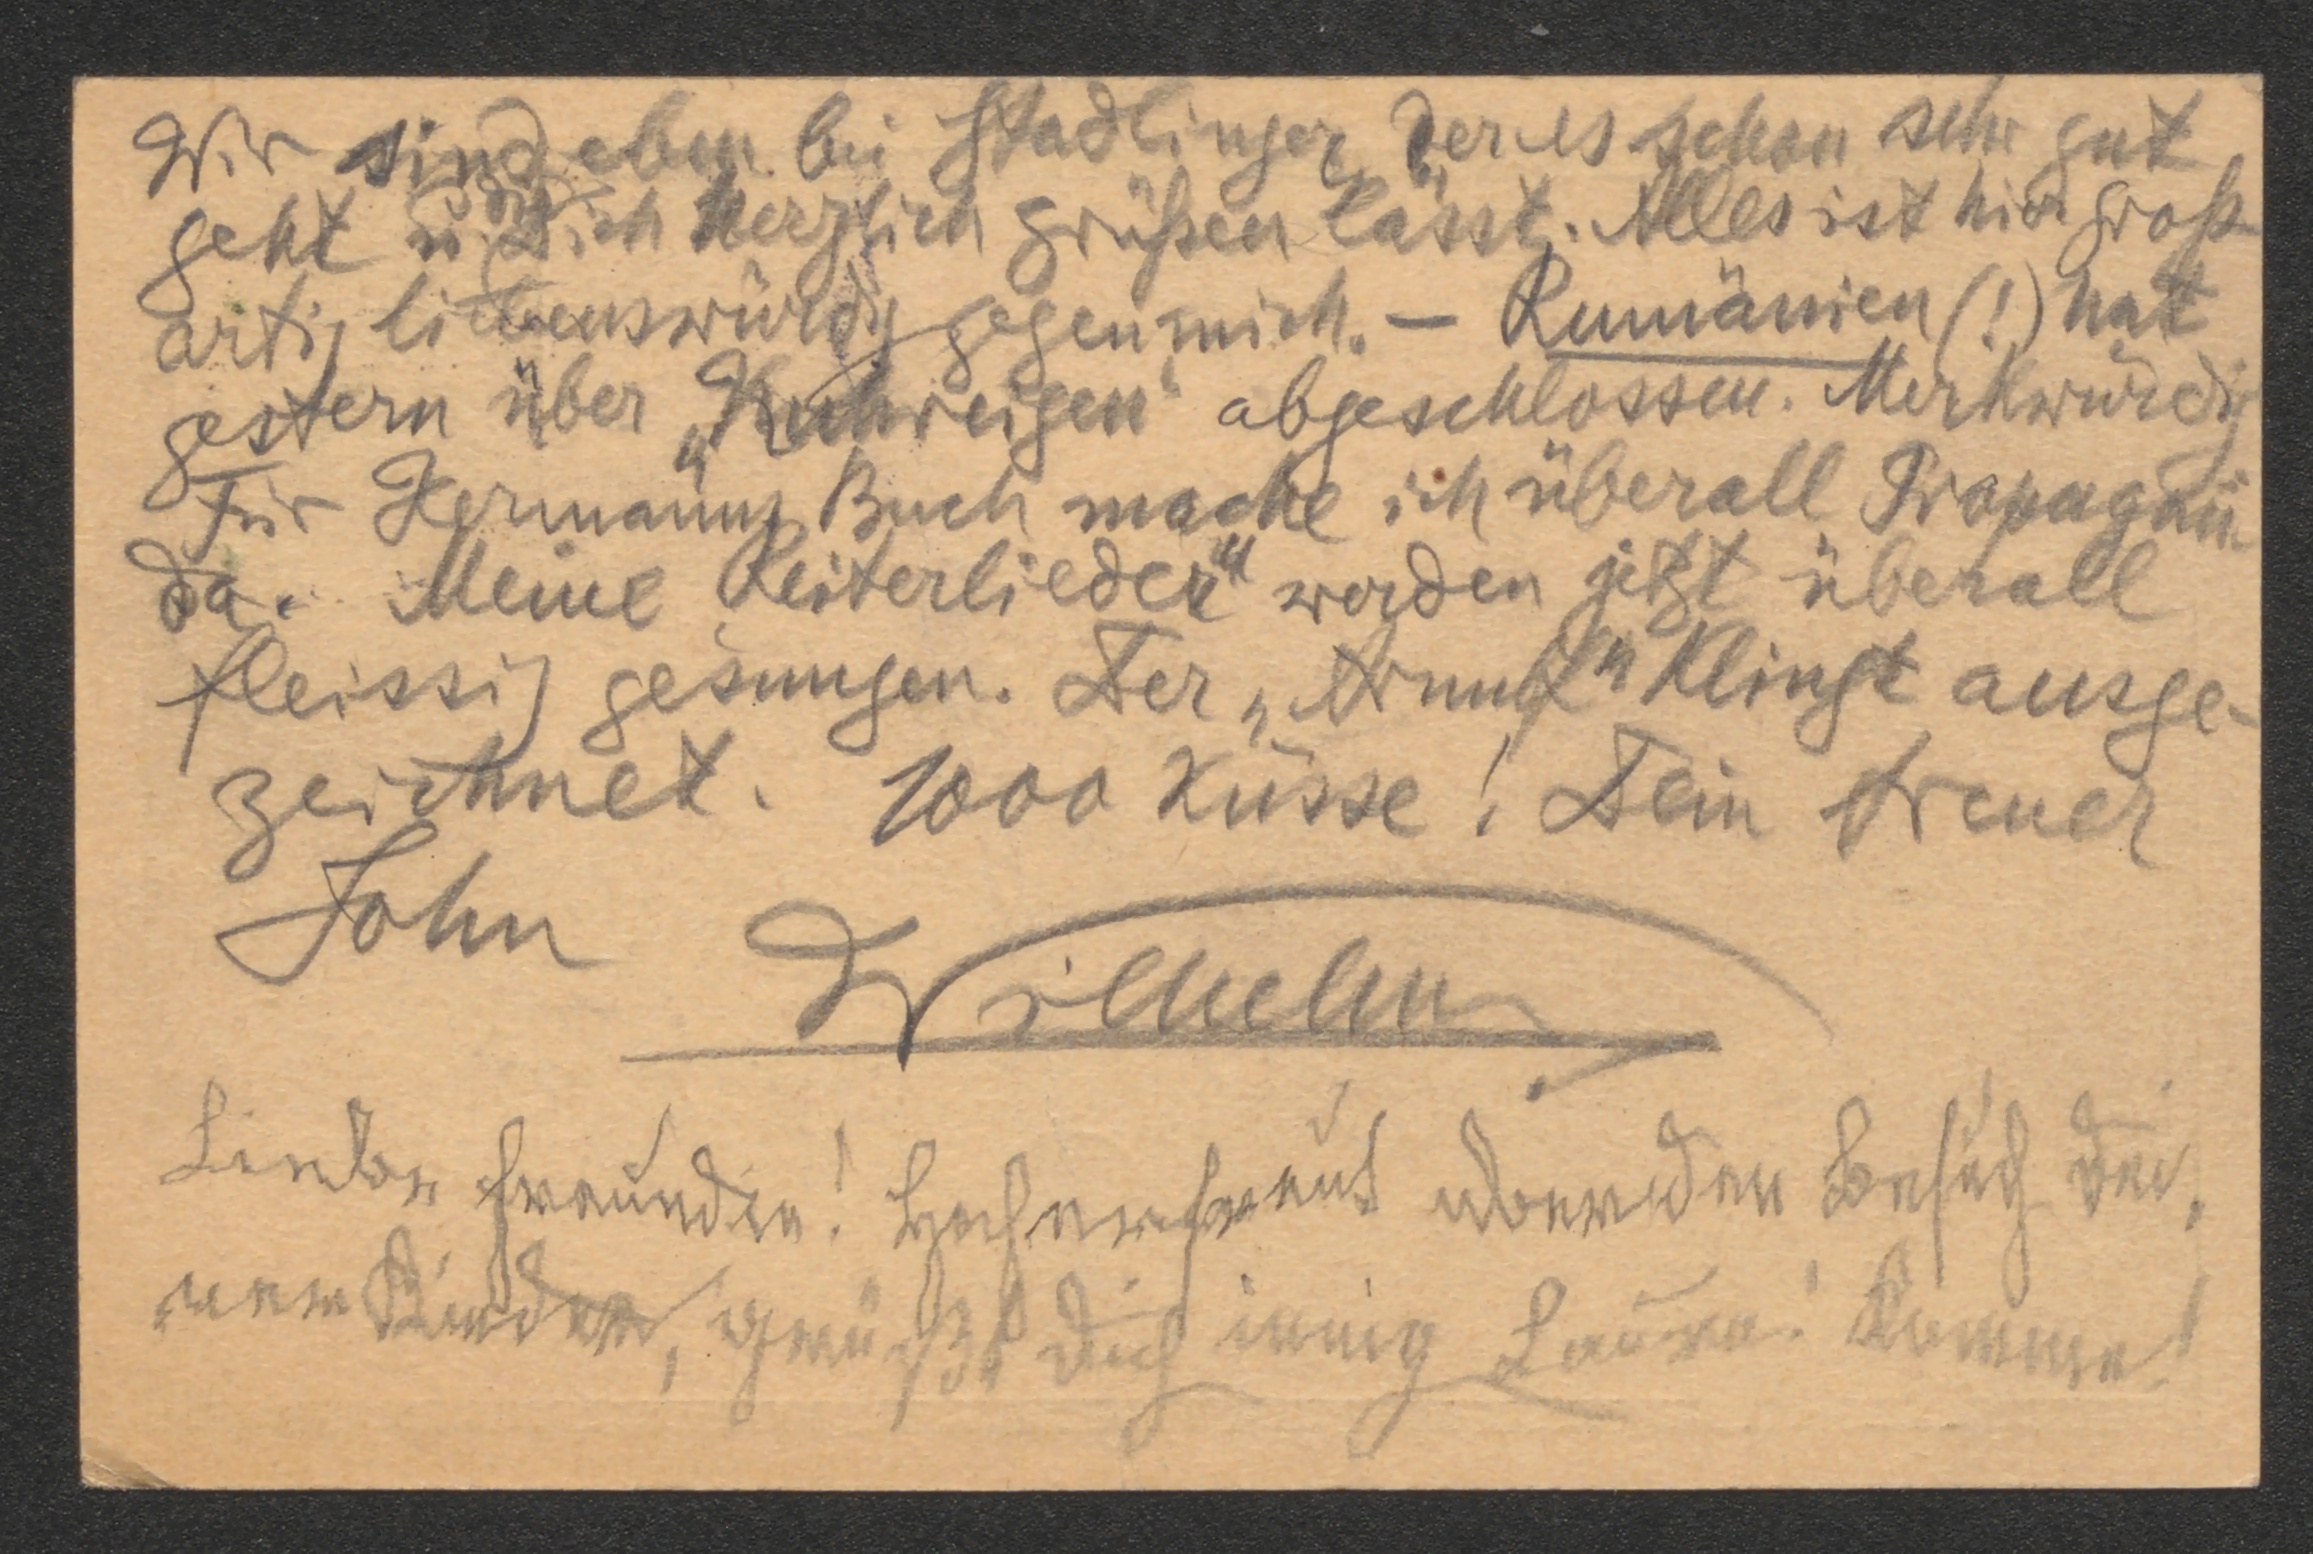 Wir sind eben bei Stadlinger, der es schon sehr gut
geht u. Dich herzlich grüßen lässt. Alles ist hier groß-
artig liebenswürdig gegen mich. – Rumänien (!) hat
gestern über „Kuhreigen“ abgeschlossen. Merkwürdig
Für Hermanns Buch mache ich überall Propagan-
da. Meine Reiterlieder“ werden jetzt überall
fleissig gesungen. Der „Trunk“ klingt ausge-
zeichnet. 1000 Küsse! Dein treuer
Sohn Wilhelm
Liebe Freundin! Hocherfreut über den Besuch Dei-
ner Kinder, grüßt Dich innig Laura! Komme!